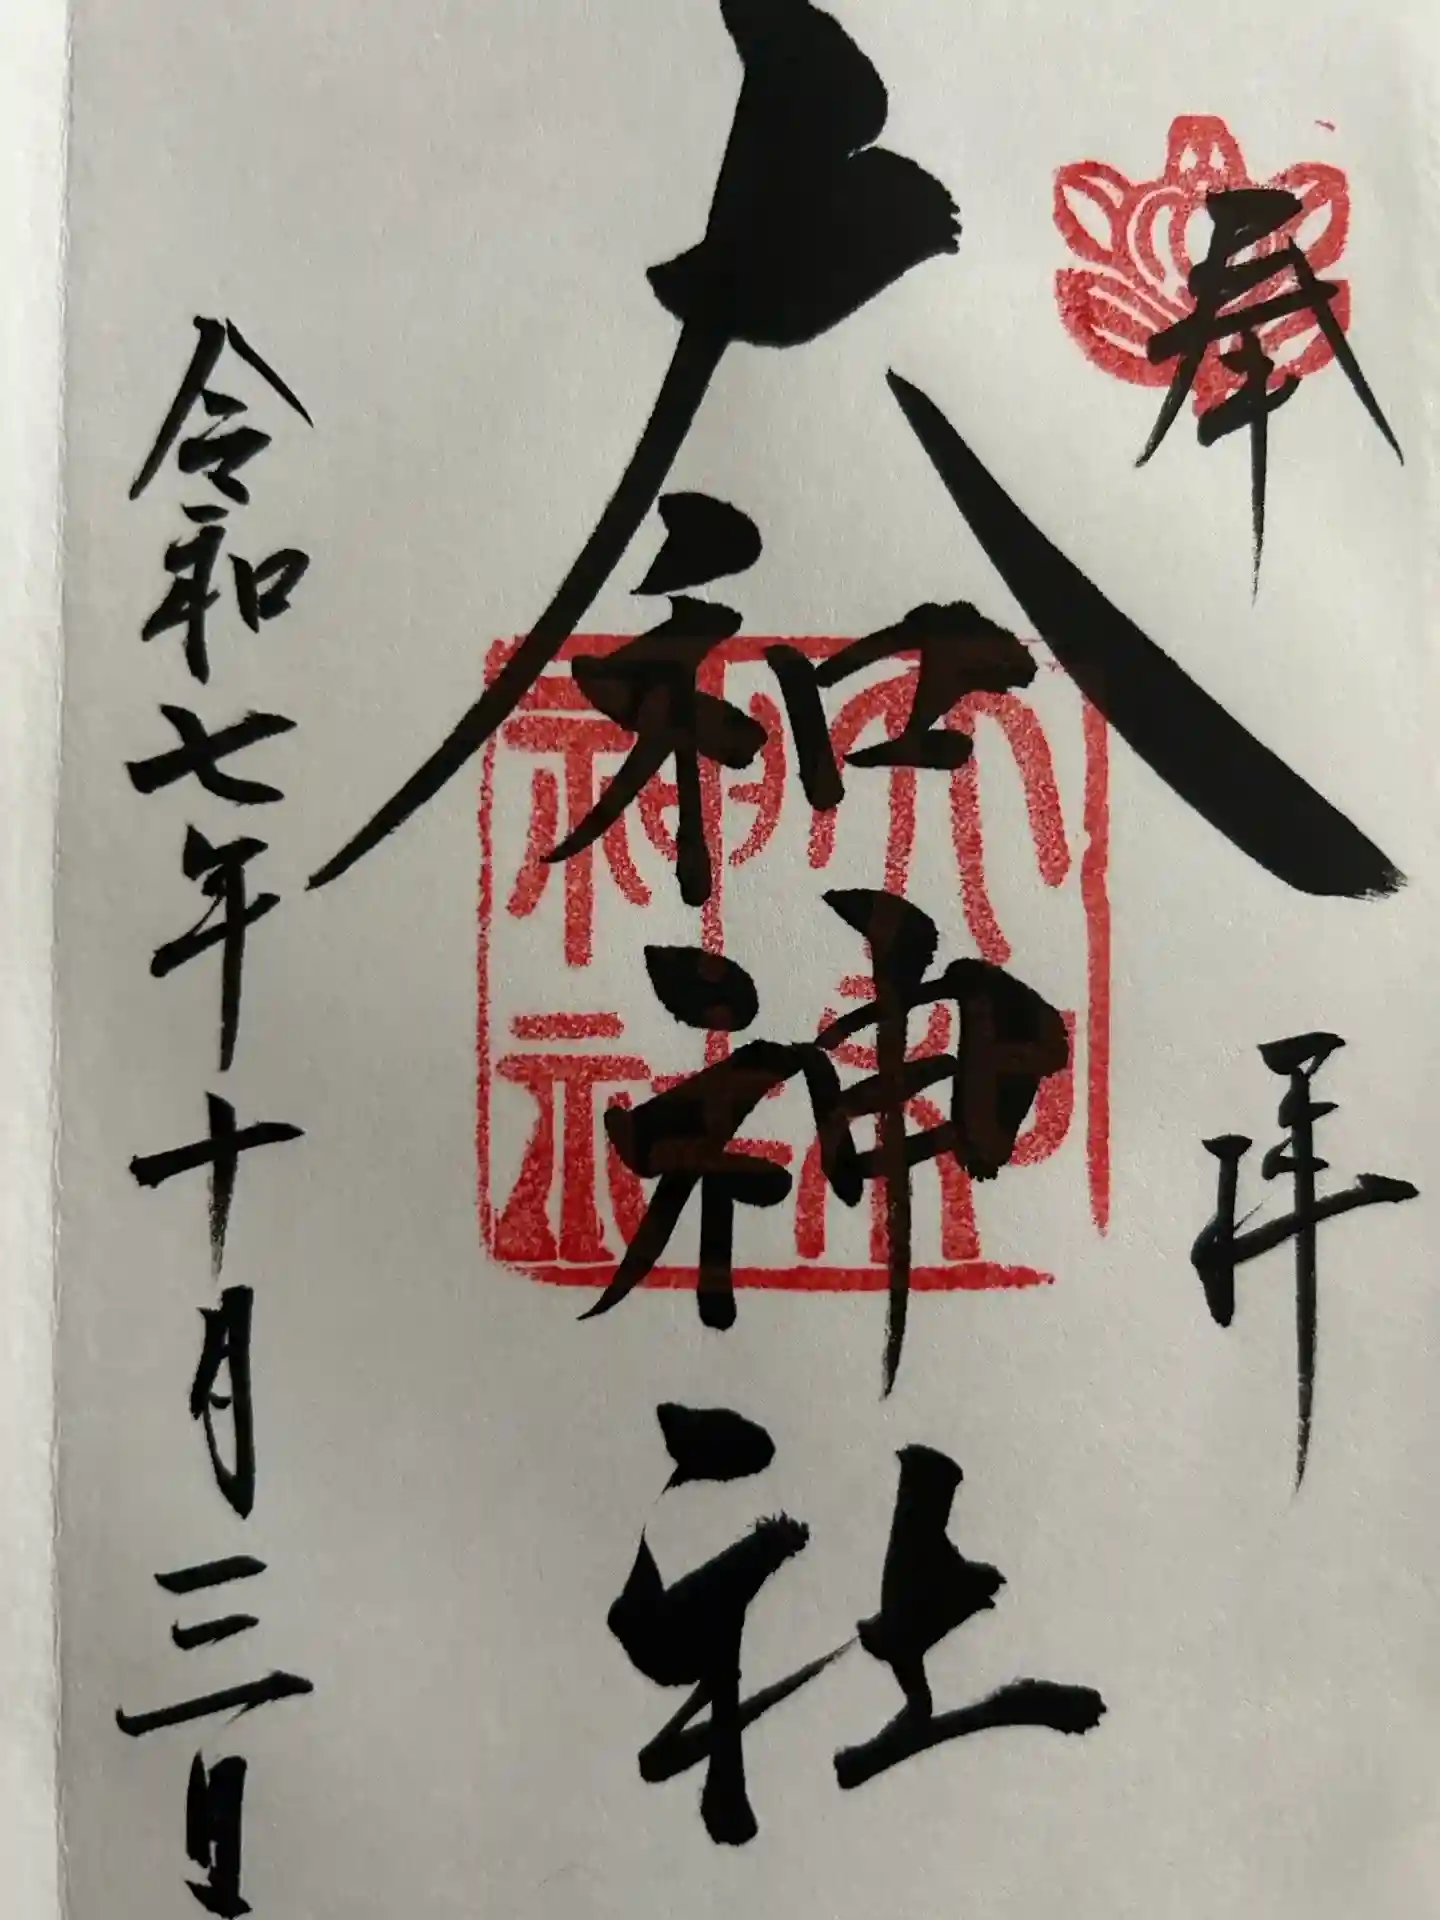 奉拝
大和神社
大和神社
令和七年十月三日